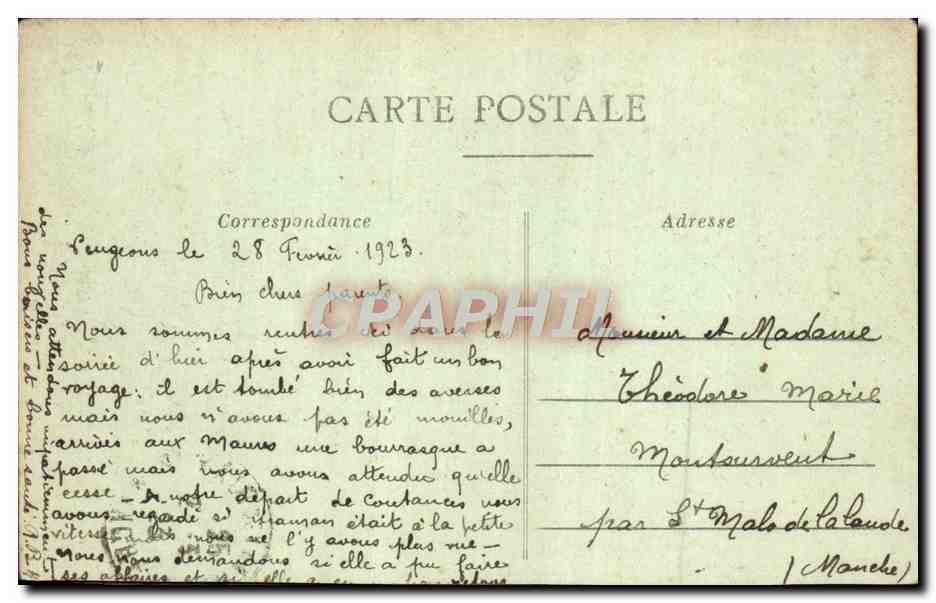 CARTE POSTALE
Correspondance
Adresse
le 28 Fevrier 1923.
Bien chers parents,
Nous sommes rentrés ici dans la
soirée d'hier après avoir fait un bon
voyage; il est tombé bien des averses
mais nous n'avons pas été mouillés,
arrivés aux Maures une bourrasque a
passé mais nous avons attendu qu'elle
cesse - A notre départ de Coutances nous
avons regardé si maman était à la petite
vitesse mais nous ne l'y avons plus vue -
Nous nous demandons si elle a pu faire
ses affaires et si elle
Nous attendons impatiemment
des nouvelles -
Bons baisers et bonne santé.
Monsieur et Madame
Théodore Marie
Montsurvent
par St Malo de la lande
(Manche)
CRAPHIL